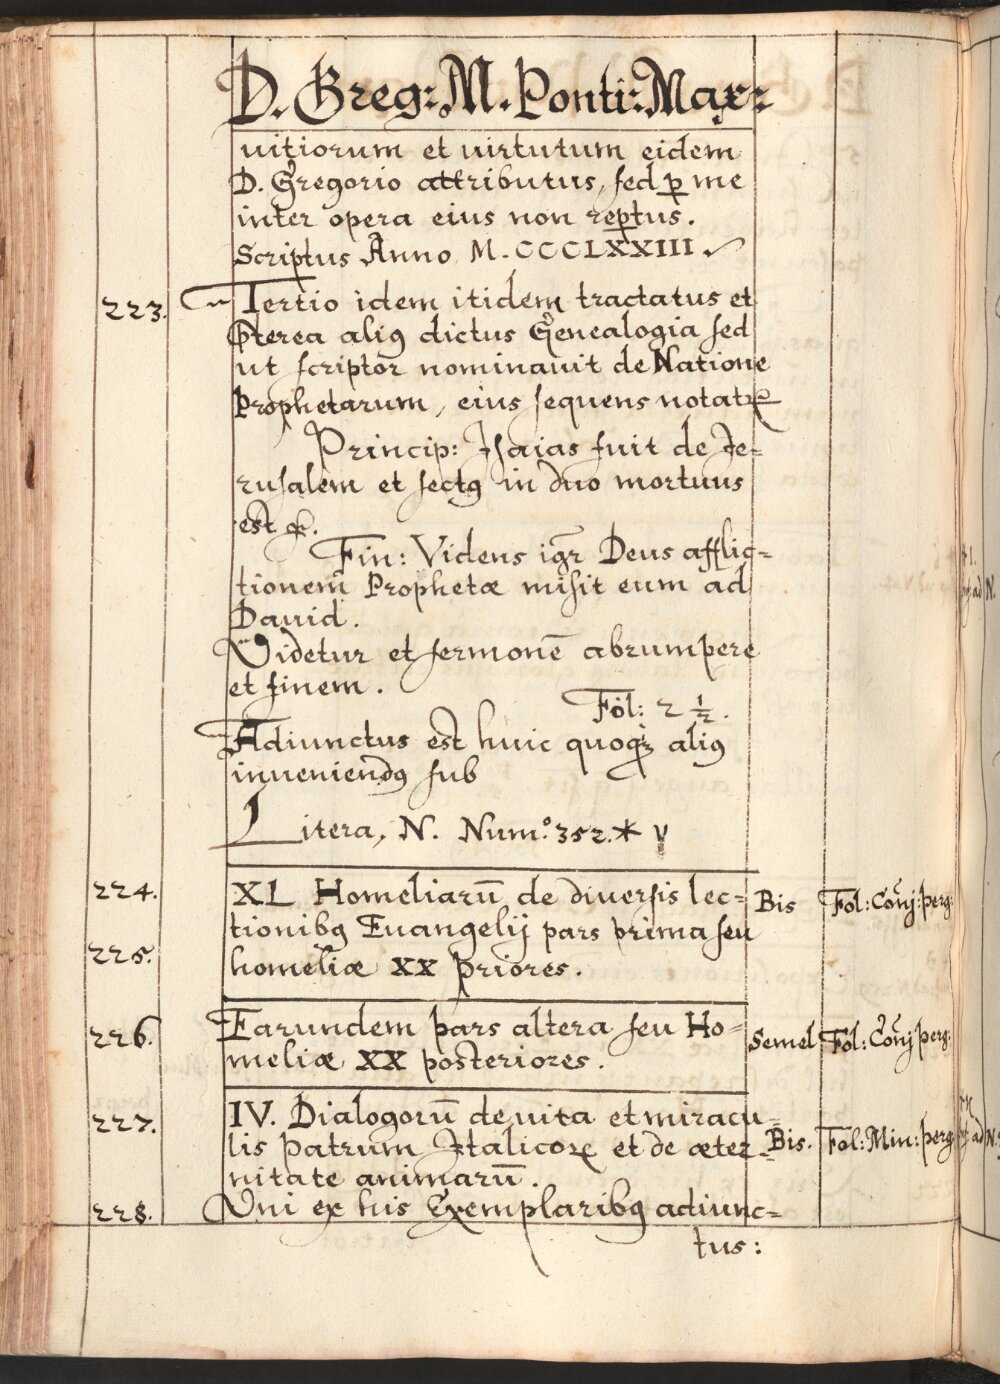 D. Greg: M. Ponti: Max:
uitiorum et uirtutum eidem
D. Gregorio attributus, sed ꝑ me
inter opera eius non rep̄tus.
Scriptus Anno M. CCCCLXXIII
223. Tertio idem itidem tractatus et
p̄terea aliꝰ dictus Genealogia sed
ut scriptor nominauit de Natione
Prophetarum, eius sequens notatꝛ
Princip: Isaias fuit de Je=
rusalem et sectꝰ in duo mortuus
est &.
Fin: Videns igr̄ Deus afflic=
tionem Prophetæ misit eum ad
Dauid.
Videtur et sermonē abrumpere
et finem.
Fol: 2 ½.
Adiunctus est huic quoqꝫ aliꝰ
inueniendꝰ sub
Litera, N. Num.º 352.* V
224. XL Homeliarū de diuersis lec= Bis Fol: Cōnj: perg:
tionibꝰ Euangelij pars prima seu
225. homeliæ XX priores.
226. Earundem pars altera seu Ho= Semel Fol: Cōnj perg:
meliæ XX posteriores.
227. IV. Dialogorū de uita et miracu=
lis Patrum Italicoꝝ et de æter= Bis. Fol: Min: perg
nitate animarū.
228. Vni ex his Exemplaribꝰ adiunc=
tus: